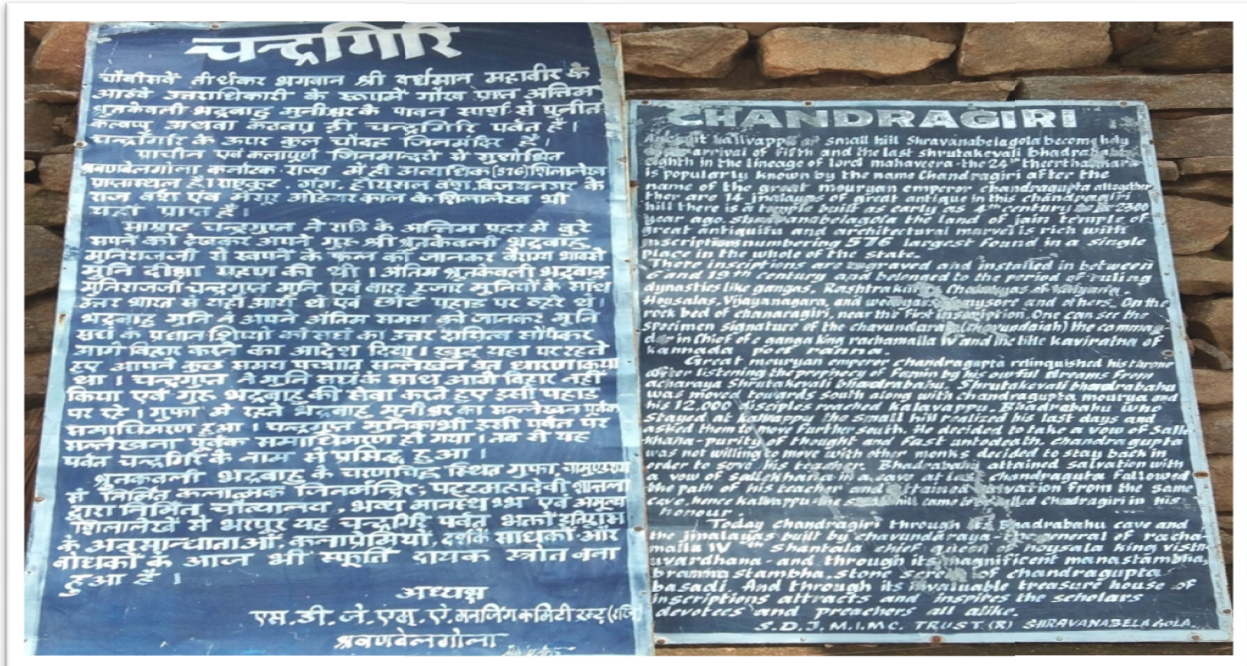 चन्द्रगिरि
चौबीसवें तीर्थकर भगवान श्री वर्धमान महावीर के
आठवे उत्तराधिकारी के रूपमे गौरव प्राप्त अन्तिम
श्रुतकेवली भद्रबाहु मुनीश्वर के पावन स्पर्श से पुनीत
कल्वप्पु अथवा कटवप्र ही चन्द्रगिरि पर्वत है।
चन्द्रगिरि के ऊपर कुल चौदह जिनमंदिर है।
प्राचीन एवं कलापूर्ण जिनमन्दिरों से सुशोभित
श्रवणबेलगोला कर्नाटक राज्य में ही अत्याधिक शिलालेख
प्राप्तस्थल है। राष्ट्रकूट, गंग, होयसल वंश, विजयनगर के
राज वंश एवं मैसूर ओडेयर काल के शिलालेख भी
यहाँ प्राप्त हैं।
साम्राट चन्द्रगुप्त ने रात्रि के अन्तिम प्रहर में बुरे
सपने को देखकर अपने गुरु श्री श्रुतकेवली भद्रबाहु
मुनिराजजी से स्वपने के फल को जानकर वैराग्य भावसे
मुनि दीक्षा ग्रहण की थी। अंतिम श्रुतकेवली भद्रबाहु
मुनिराजजी चन्द्रगुप्त मुनि एवं बारह हजार मुनियों के साथ
उत्तर भारत से यहाँ आये थे एवं छोटे पहाड पर ठहरे थे।
भद्रबाहु मुनि ने अपने अंतिम समय को जानकर मुनि
संघ के प्रधान शिष्यों को संघ का उत्तर दायित्व सौंपकर
आगे विहार करने का आदेश दिया। खुद यहा पर रहते
हुए आपने कुछ समय पश्चात सल्लेखन व्रत धारण किया
था। चन्द्रगुप्त ने मुनि संघ के साथ आगे विहार नहीं
किया एवं गुरु भद्रबाहु की सेवा करते हुए इसी पहाड
पर रहे। गुफा में रहते भद्रबाहु मुनीश्वर का सल्लेखन पूर्वक
समाधिमरण हुआ। चन्द्रगुप्त मुनिका भी इसी पर्वत पर
सल्लेखना पूर्वक समाधिमरण हो गया। तब से यह
पर्वत चन्द्रगिरि के नाम से प्रसिद्ध हुआ।
श्रुतकेवली भद्रबाहु के चरणचिह्न स्थित गुफा, चामुण्डराय
से निर्मित कलात्मक जिनमन्दिर, पट्टमहादेवी शान्तला
द्वारा निर्मित चैत्यालय, भव्य मानस्थंभ एवं अमूल्य
शिलालेखों से भरपूर यह चन्द्रगिरि पर्वत भक्तों इतिहास
के अनुसान्धाताओं, कलाप्रेमियों, दर्शकों साधकों और
बोधकों के आज भी स्फूर्ति दायक स्त्रोत बना
हुआ है।
अध्यक्ष
एस. डी. जे. एम. ऐ. मनजिंग कमिटी ट्रस्ट
श्रवणबेलगोला
CHANDRAGIRI
Ancient kalvappu or small hill Shravanabelagola becomes holy
arrival of fifth and the last shrutakevali bhadrabahu
eighth in the lineage of lord mahaveera the 24th theerthankara
is popularly known by the name Chandragiri after the
name of the great mouryan emperor chandragupta altogether
ther are 14 jinalayas of great antique in this chandragiri
hill there is a temple built as early as 4th century 2300
year ago. Shravanabelagola the land of jain temples of
great antiquity and architectural marvel is rich with
inscriptions numbering 576 largest found in a single
Place in the whole of the State.
These inscriptions are engraved and installed in between
6 and 19th century and belonged to the period of ruling
dynasties like gangas, Rashtrakutas Chalukyas of kalyana,
Hoysalas, Vijayanagara, and wodeyars of mysore and others. On the
rock bed of chanaragiri, near the first inscription. One can see the
specimen signature of the chavundaraya (chavundaiah) the comman
der in Chief of e ganga king rachamalla IV and the title kaviratna of
kannada poet ranna.
Great mouryan emperor chandragupta relinquished his throne
after listening the prophecy of famin by his earting Dreams From
acharaya Shrutakevali bhadrabahu. Shrutakevali bhadrabahu
was moved towards south along with chandragupta mourya and
his 12,000 disciples reached kalavappu. Bhadrabahu who
stayed at kalvappu the small hill realized his last days and
asked them to move further south. He decided to take a vow of Salle
khana-purity of thought and fast untodeath. chandra gupta
was not willing to move with other monks decided to stay back in
order to serve his teacher. Bhadrabahu attained salvation with
a vow of sallekhana in a cave at last chandraguta followed
the path of his teacher and attained salvation from the same
cave. hence kalvappu hill came to be called chandragiri in his
honour.
Today chandragiri through its Bhadrabahu cave and
the jinalayas built by chavundaraya-the general of racha-
malla IV Shantala chief queen of hoysala king vishnu
uvardhana- and through its magnificent manastambha,
bramha stambha, stone screen of chandragupta
basadi. And through its invaluable treasure house of
inscriptions attracts and inspires the scholars
devotees and preachers all alike.
S.D.J.M.I.MC. TRUST (R) SHRAVANABELAGOLA